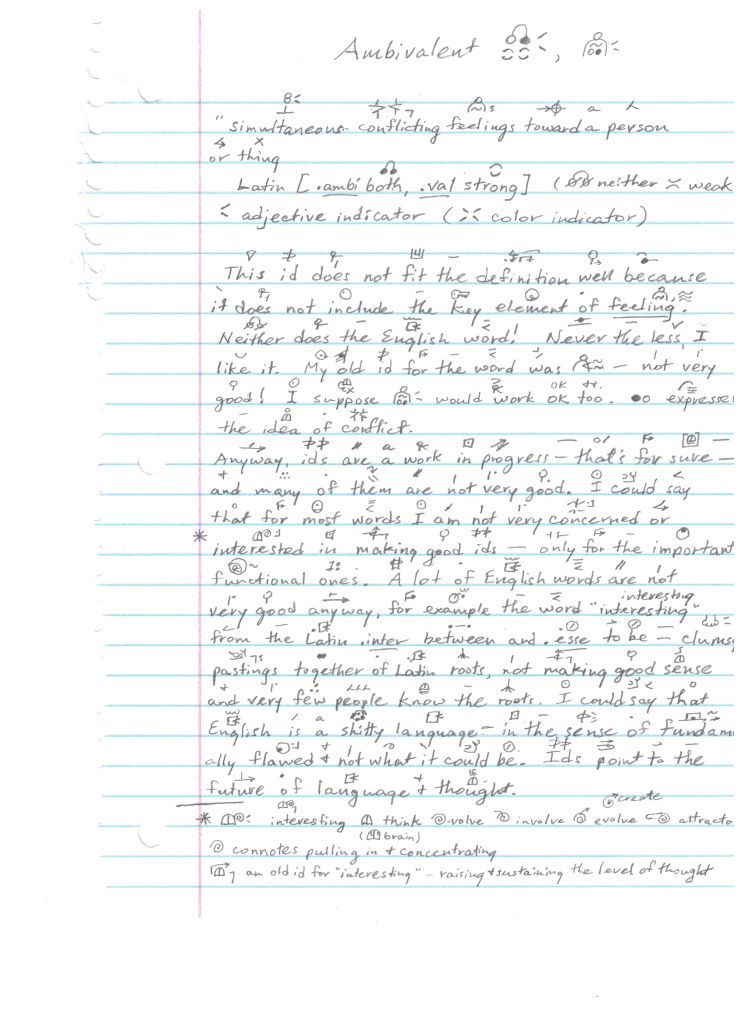 Ambivalent ,
"simultaneous conflicting feelings toward a person
or thing
Latin [.ambi both, .val strong] ( neither weak
adjective indicator ( color indicator)
This id does not fit the definition well because
it does not include the key element of feeling.
Neither does the English word! Never the less, I
like it. My old id for the word was — not very
good! I suppose would work OK too. expresse
the idea of conflict.
Anyway, ids are a work in progress — that's for sure —
and many of them are not very good. I could say
that for most words I am not very concerned or
* interested in making good ids — only for the important
functional ones. A lot of English words are not
interesting
very good anyway, for example the word "interesting"
from the Latin .inter between and .esse to be — clums
pastings together of Latin roots, not making good sense
and very few people know the roots. I could say that
English is a shitty language — in the sense of fundam
ally flawed + not what it could be. Ids point to the
future of language + thought.
create
* : interesting think volve involve evolve attracto
( brain)
connotes pulling in + concentrating
an old id for "interesting" – raising + sustaining the level of thought